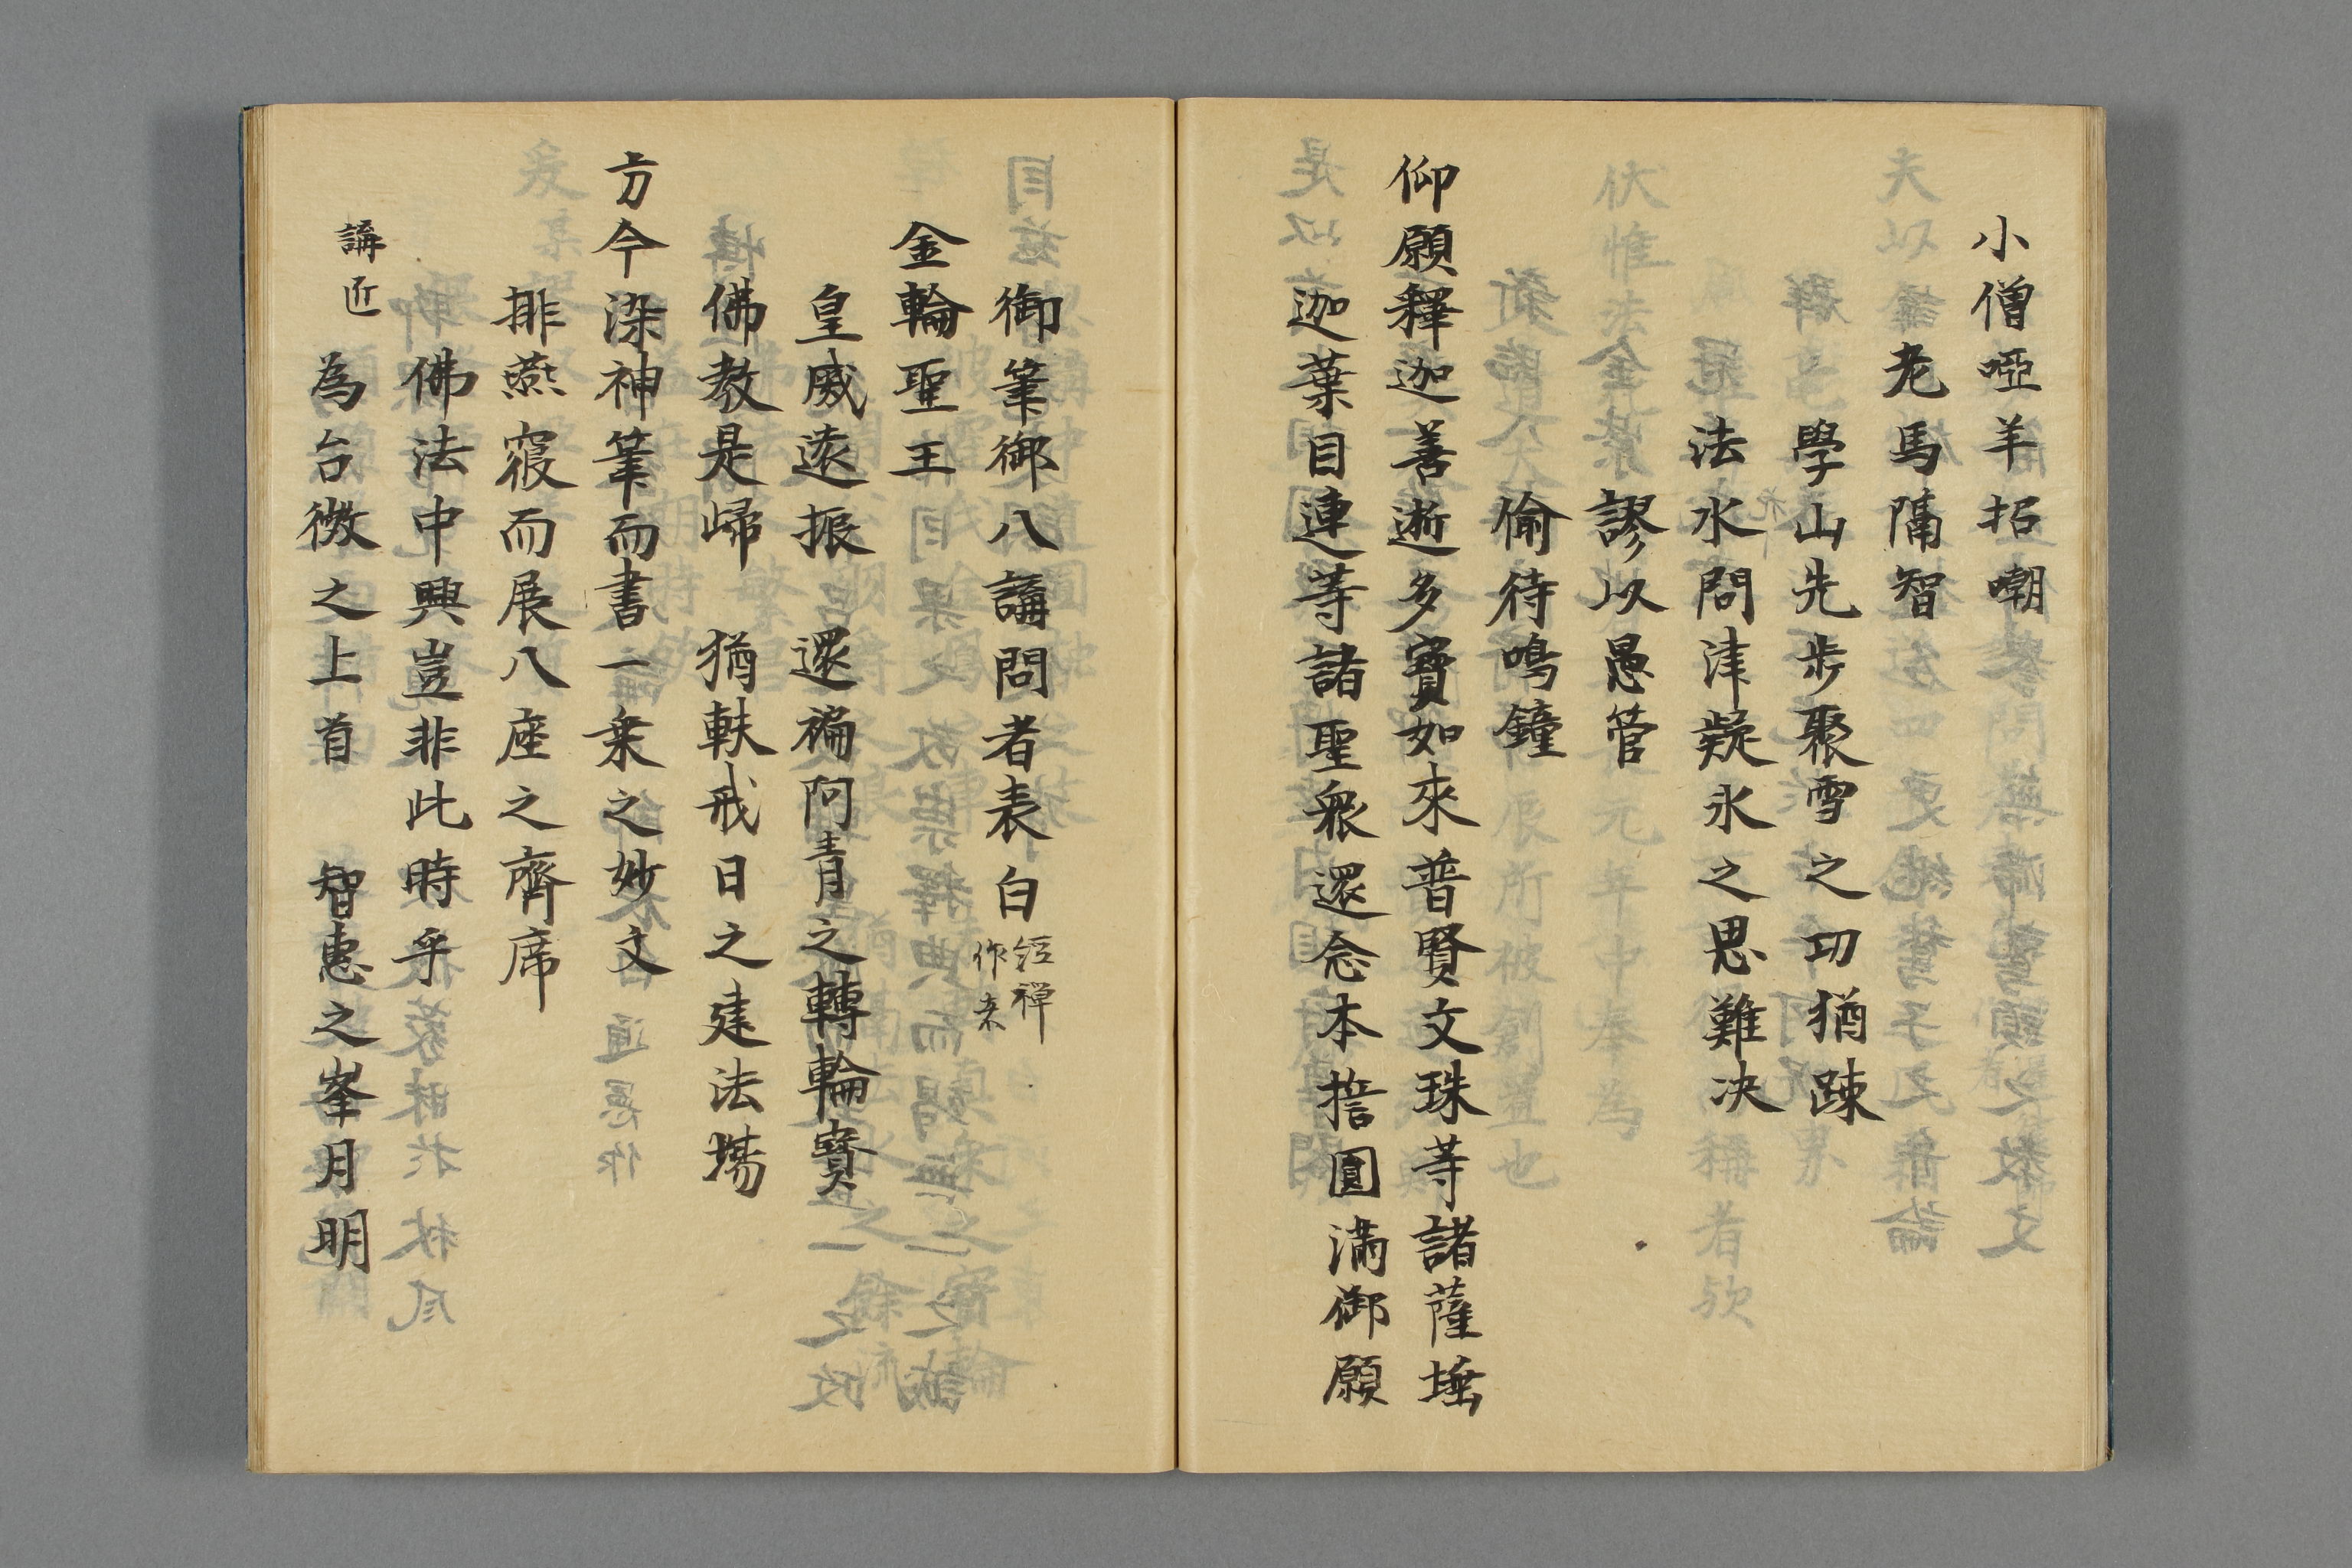 小僧啞羊招嘲
老馬隔智
學山先歩聚雪之功猶踈
法水問津疑氷之思難决
謬以愚管
偷待鳴鐘
仰願釋迦善逝多寶如來普賢文珠等諸薩埵
迦葉目連等諸聖衆還念本誓圓滿御願
御筆御八講問者表白
作来
金輪聖王
皇威遠振 還褊阿育之轉輪寶
佛教是歸 猶軼戒日之建法場
方今染神筆而書一乗之妙文
排燕寢而展八座之齊席
佛法中興豈非此時乎
講匠
為台微之上首 智惠之峯月明